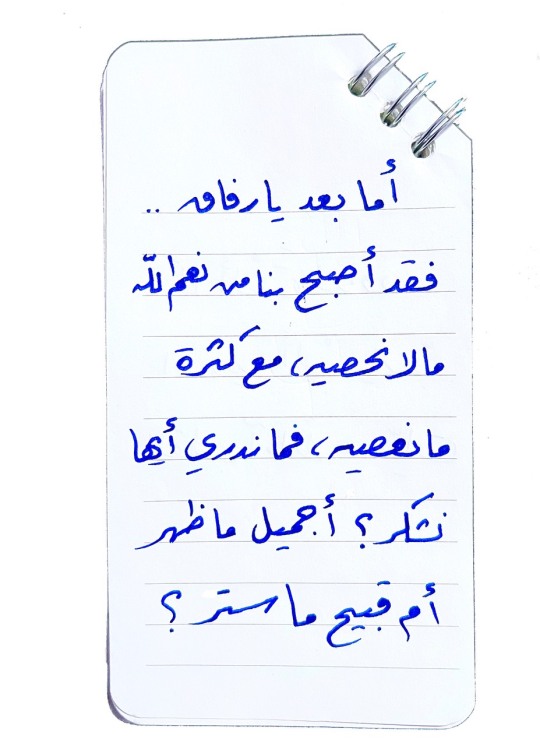 أما بعد يا رفاق ..
فقد أصبح بنا من نعم الله
ما لا نحصيه، مع كثرة
ما نعصيه، فما ندري أيها
نشكر؟ أجميل ما ظهر
أم قبيح ما ستر؟